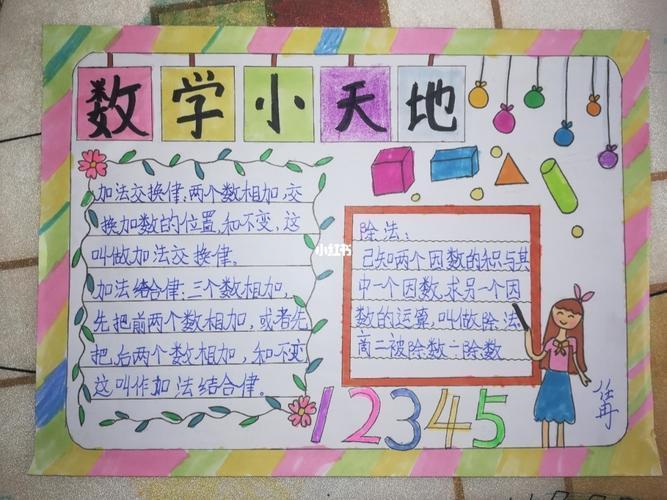 数学小天地
加法交换律:两个数相加,交
换加数的位置,和不变,这
叫做加法交换律。
加法结合律:三个数相加,
先把前两个数相加,或者先
把后两个数相加,和不变
这叫作加法结合律。
小红书
除法:
已知两个因数的积与其
中一个因数,求另一个因
数的运算,叫做除法
商=被除数÷除数
12345